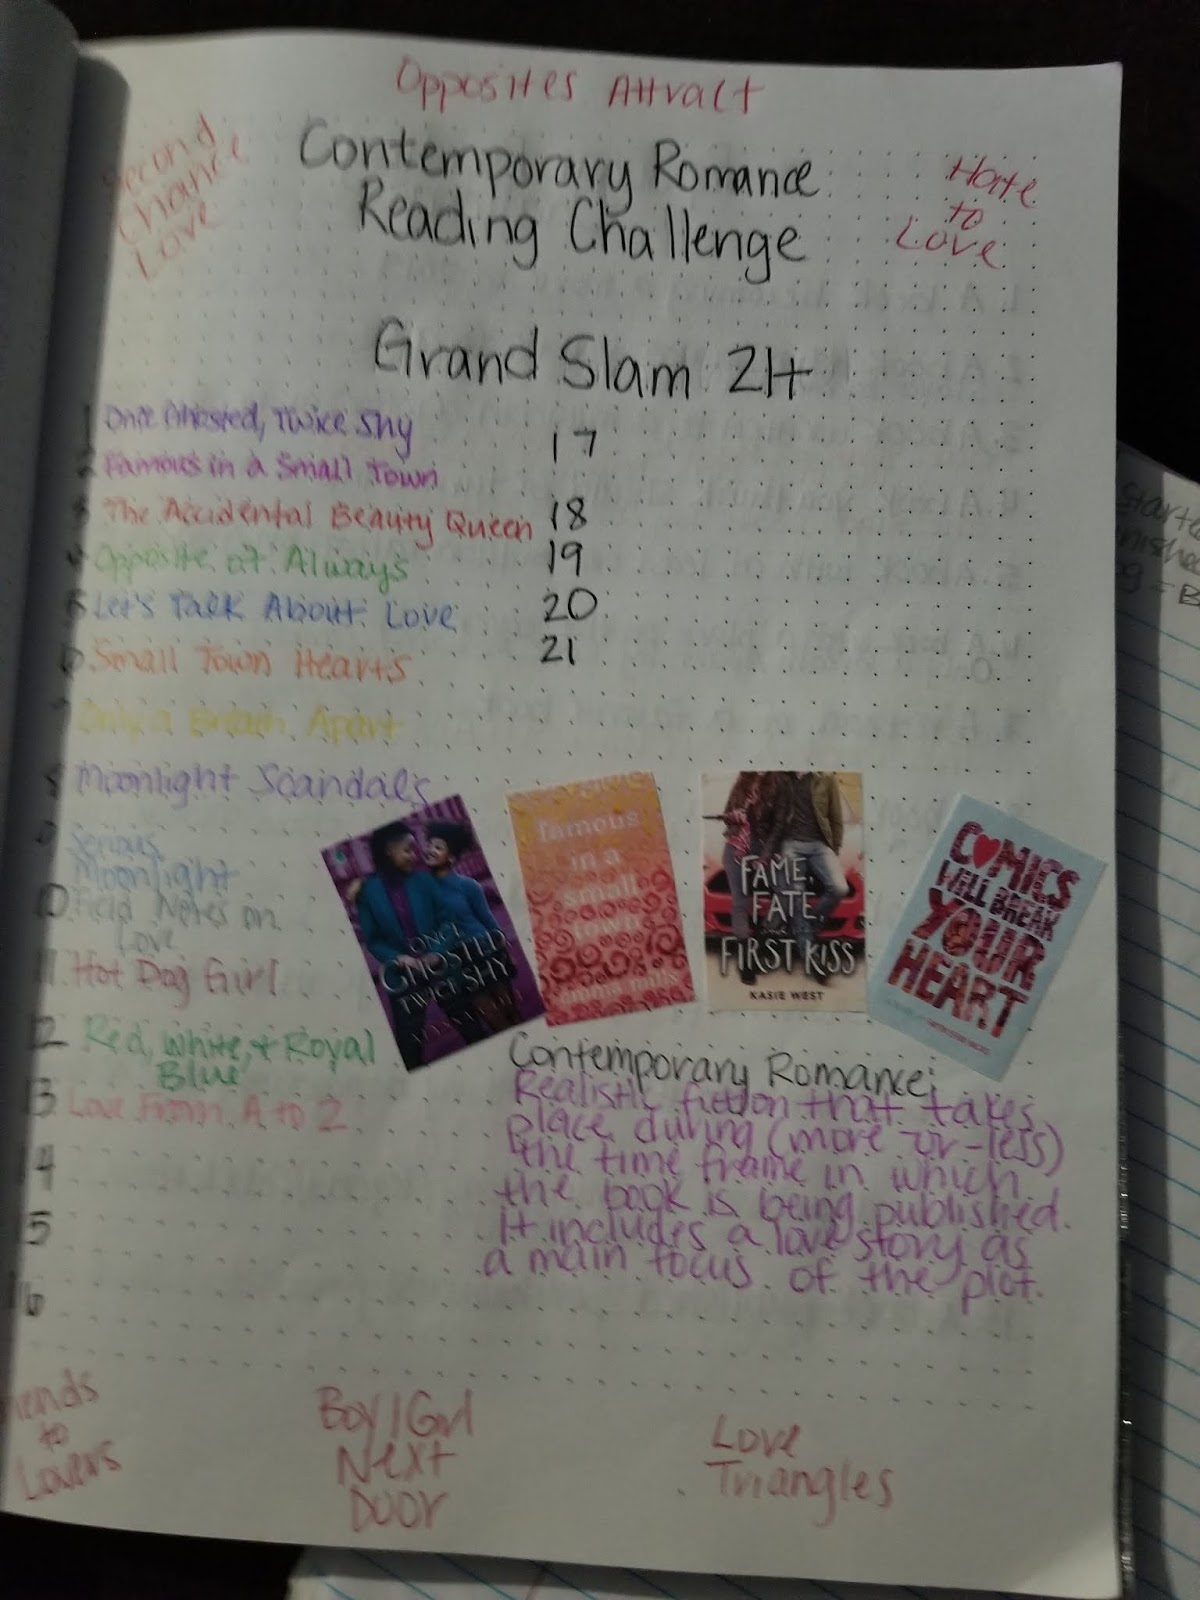 Opposites Attract
Second
Chance
Love
Contemporary Romance
Reading Challenge
Hate
to
Love
Grand Slam 21+
1 Once Ghosted, Twice Shy
2 Famous in a Small Town
3 The Accidental Beauty Queen
4 Opposite of Always
5 Let's Talk About Love
6 Small Town Hearts
7 Only a Breath Apart
8 Moonlight Scandals
9 Serious
Moonlight
10 Field Notes on
Love
11 Hot Dog Girl
12 Red, White, + Royal
Blue
13 Love From A to Z
14
15
16
17
18
19
20
21
ONCE
GHOSTED
TWICE SHY
famous
in a
small
town
FAME,
FATE,
FIRST KISS
KASIE WEST
COMICS
WILL BREAK
YOUR
HEART
Contemporary Romance:
Realistic fiction that takes
place during (more-or-less)
the time frame in which
the book is being published.
It includes a love story as
a main focus of the plot.
iends
to
Lovers
Boy/Girl
Next
Door
Love
Triangles